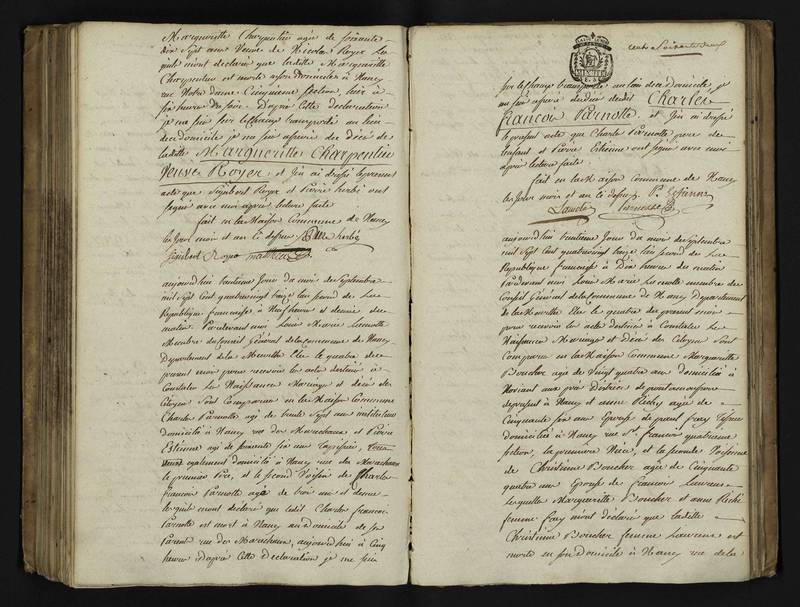 Margueritte Charpentier agée de soixante
dix sept ans Veuve de Nicolas Royer Les
quels mont declaré que ladite Margueritte
Charpentier est morte à son domicile à Nancy
rue Notre dame Cinquieme section, hier à
six heures du soir. D'après cette declaration
je me suis sur le champ transporté au lieu
de ce domicile je me suis assuré du Décès de
ladite Margueritte Charpentier
Veuve Royer et j'en ai dressé le present
acte que Sigisbert Royer et Pierre herbé ont
signé avec moi après lecture faite
fait en la Maison Commune de Nancy
les jour mois et an ci dessus herbé
Sigisbert Royer
aujourd'hui trentieme jour du mois de Septembre
mil sept cent quatrevingt treize l'an second de La
République française à Neuf heures et demie du
matin. Pardevant moi Louis Marie Lamotte
Membre du Conseil Général de la commune de Nancy
Département de la Meurthe Elu le quatre du
present mois pour recevoir les actes destinés à
Constater les Naissances Mariages et décès des
Citoyens sont Comparus en la Maison Commune
Charles Parmotte agé de trente sept ans instituteur
domicilié à Nancy rue des Marechaux et Pierre
Estienne agé de soixante six ans
également domicilié à Nancy rue des Marechaux
le premier Père, et le second Voisin de Charles
francois Parmotte agé de trois ans et demi
lesquels mont declaré que ledit Charles francois
Parmotte est mort à Nancy au Domicile de ses
Parents rue des Marechaux, aujourd'hui à Cinq
heures d'après cette Declaration je me suis
cent Soixante deux
sur le champ transporté au lieu de ce Domicile, je
me suis assuré du décès dudit Charles
francois Parmotte. et j'en ai dressé
le present acte que Charles Parmotte pere de
l'enfant et Pierre Etienne ont signé avec moi
après lecture faite.
fait en la Maison Commune de Nancy
les jour mois et an ci dessus P. Estienne
aujourd'hui trentieme Jour du mois de Septembre
mil sept cent quatrevingt treize l'an second de La
République francaise à Dix heures du matin
Pardevant moi Louis Marie Lamotte membre du
Conseil Général de la Commune de Nancy Departement
de la Meurthe Elu le quatre du present mois
pour recevoir les actes destinés à Constater Les
Naissances Mariages et Décès des Citoyens Sont
Comparus en la Maison Commune Margueritte
Boucher agée de Vingt quatre ans Domiciliée à
Noviant aux prés District de pont amousson
depresent à Nancy et anne Richy agée de
Cinquante six ans Epouse de
domiciliée à Nancy rue St. francois quatrieme
section, la premiere Niece, et la seconde Voisine
de Christienne Boucher agée de Cinquante
quatre ans Epouse de francois Laurent
lesquelles Margueritte Boucher et anne Riché
femme mont declaré que ladite
Christienne Boucher femme Laurent est
morte en son domicile à Nancy rue de la